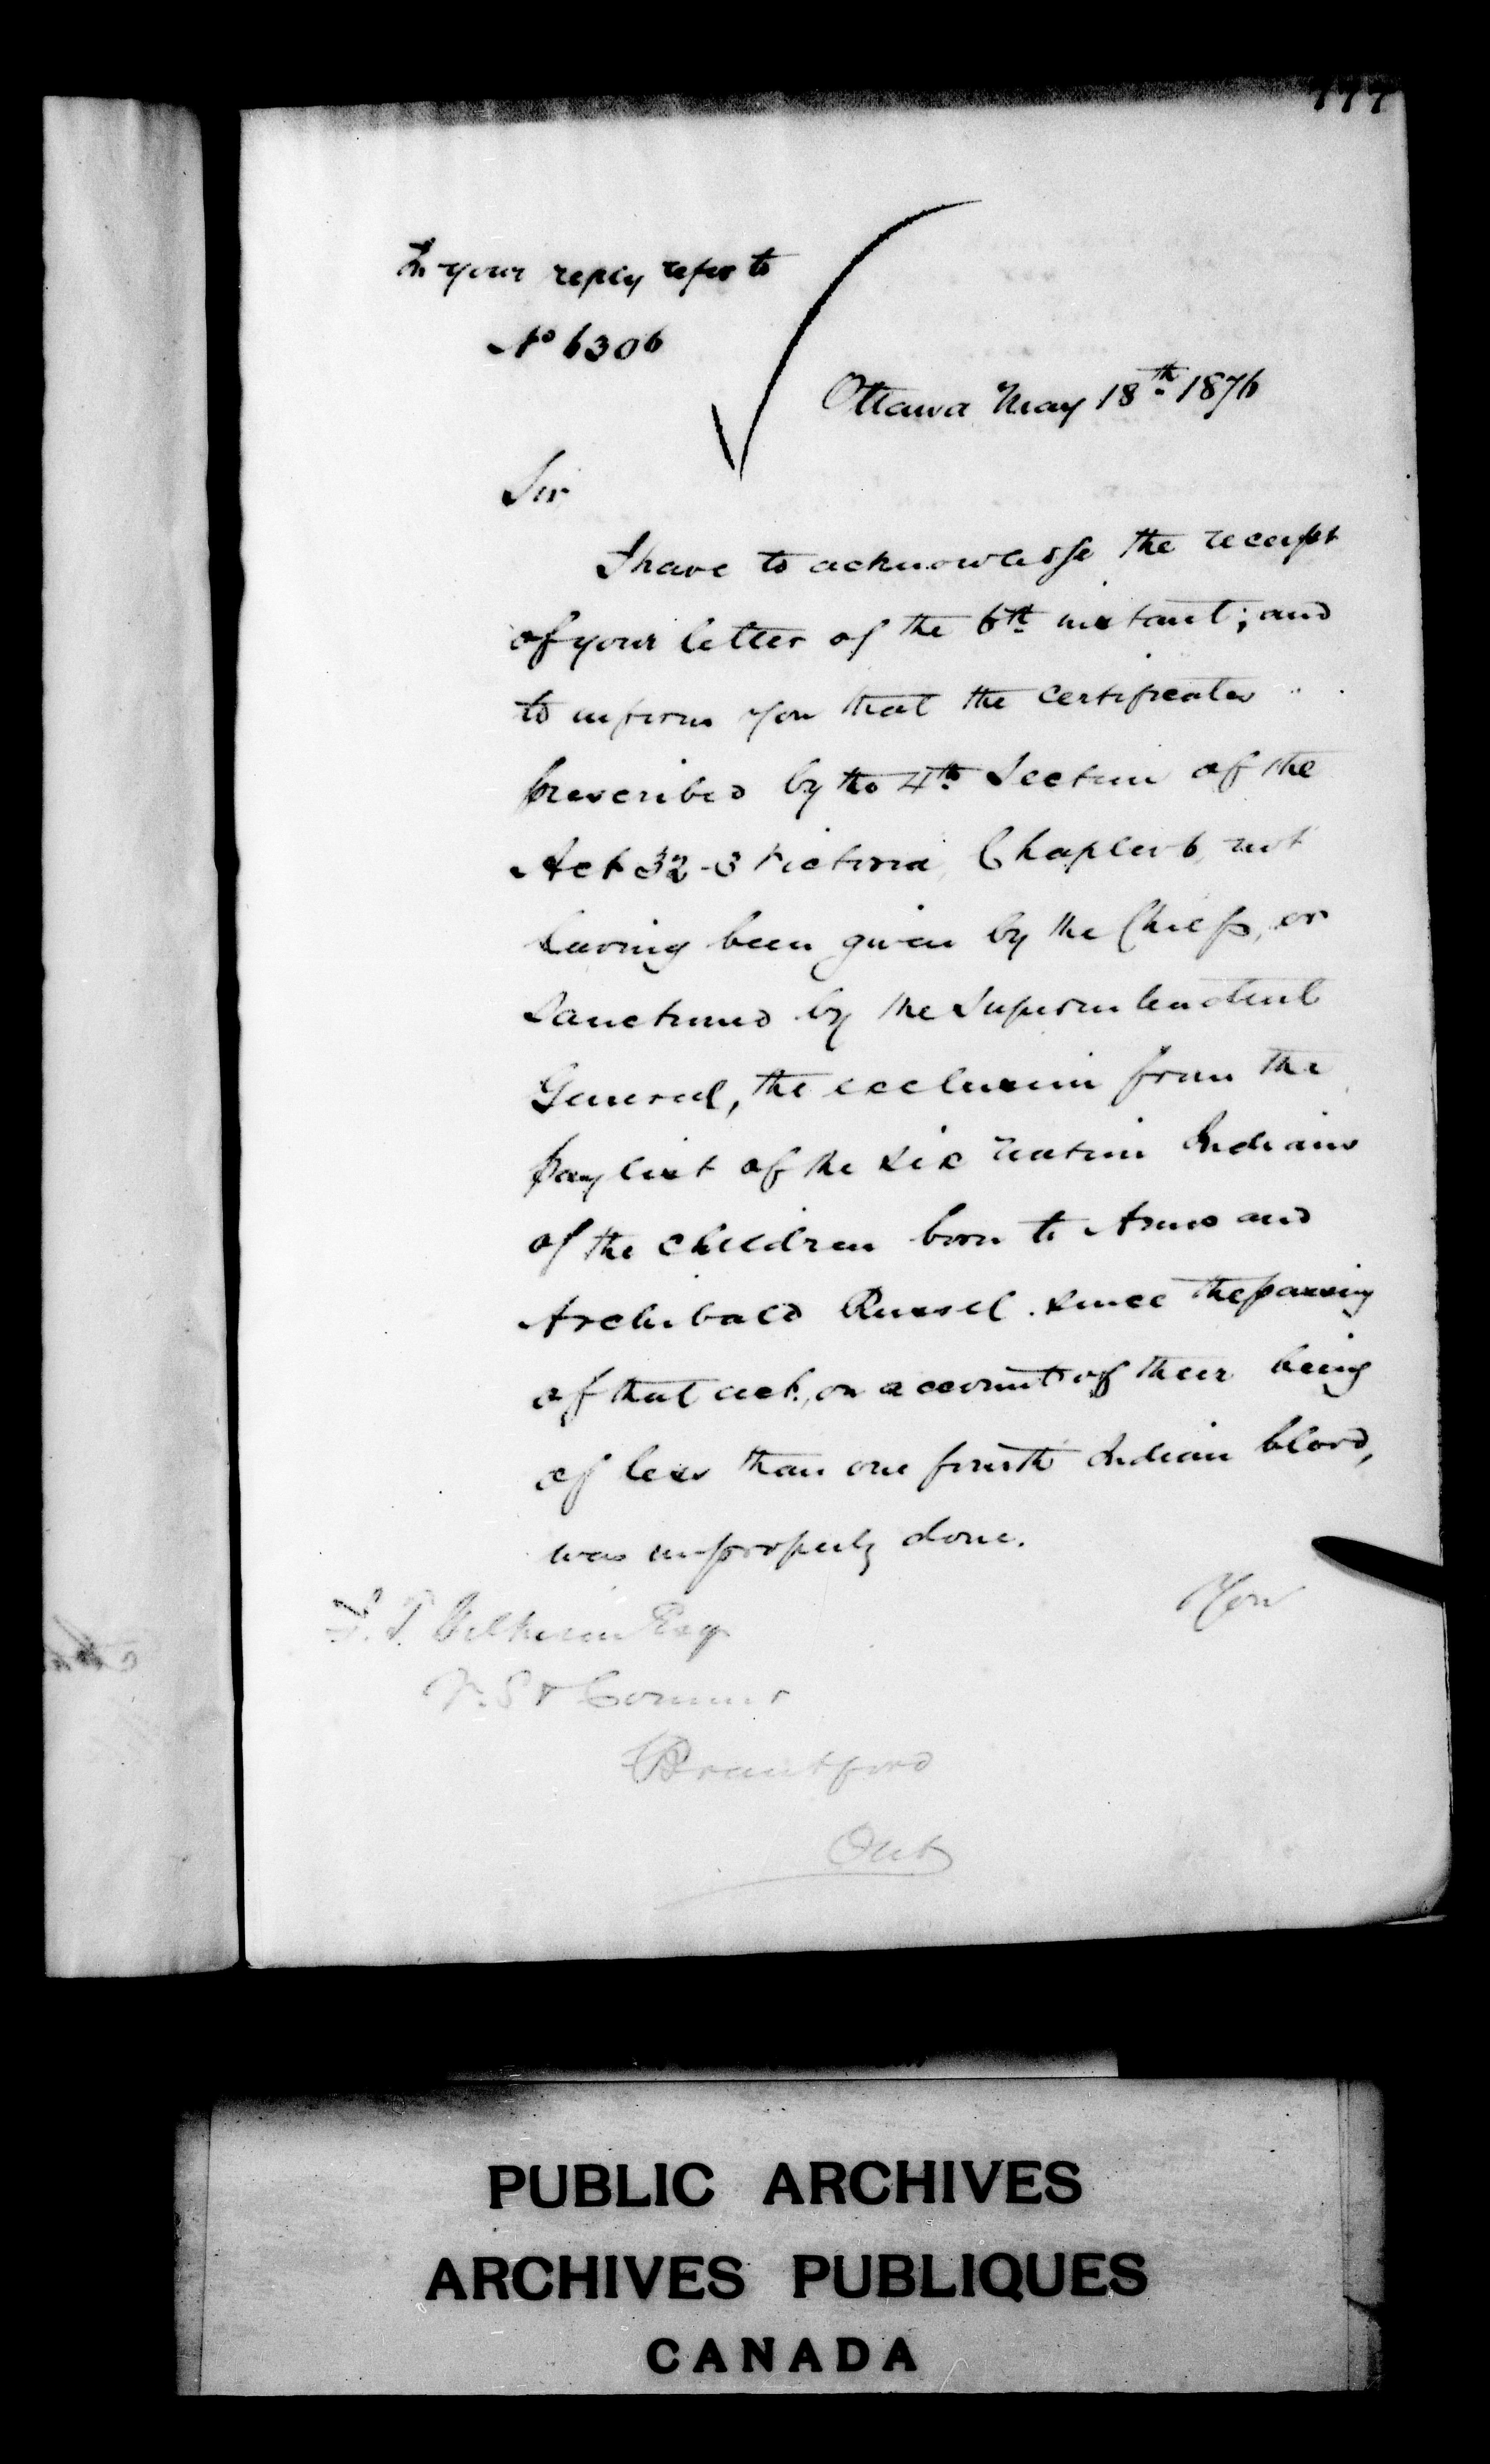 777
In your reply refer to
No 6306
Ottawa May 18th 1876
Sir
I have to acknowledge the receipt
of your letter of the 6th instant; and
to inform you that the certificates
prescribed by the 4th Section of the
Act 32-3 Victoria, Chapter 6, not
having been given by the Chiefs, or
sanctioned by the Superintendent
General, the exclusion from the
pay list of the Six Nation Indians
of the children born to and
Archibald Russel since the passing
of that act, on account of their being
of less than one fourth Indian blood,
was improperly done.
You
J. T. Gilkison Esq
V. S & Commr
Brantford
Ont
PUBLIC ARCHIVES
ARCHIVES PUBLIQUES
CANADA